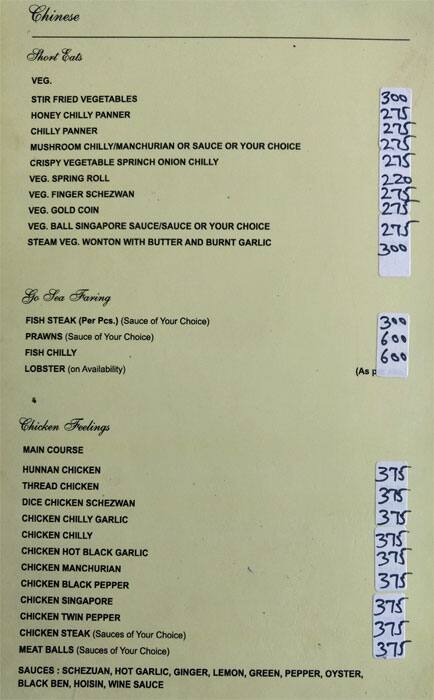 Chinese
Short Eats
VEG.
STIR FRIED VEGETABLES 300
HONEY CHILLY PANNER 275
CHILLY PANNER 275
MUSHROOM CHILLY/MANCHURIAN OR SAUCE OR YOUR CHOICE 275
CRISPY VEGETABLE SPRINCH ONION CHILLY 275
VEG. SPRING ROLL 220
VEG. FINGER SCHEZWAN 275
VEG. GOLD COIN 275
VEG. BALL SINGAPORE SAUCE/SAUCE OR YOUR CHOICE 275
STEAM VEG. WONTON WITH BUTTER AND BURNT GARLIC 300
Go Sea Faring
FISH STEAK (Per Pcs.) (Sauce of Your Choice) 300
PRAWNS (Sauce of Your Choice) 600
FISH CHILLY 600
LOBSTER (on Availability) (As
Chicken Feelings
MAIN COURSE
HUNNAN CHICKEN 375
THREAD CHICKEN
DICE CHICKEN SCHEZWAN 375
CHICKEN CHILLY GARLIC 375
CHICKEN CHILLY 375
CHICKEN HOT BLACK GARLIC 375
CHICKEN MANCHURIAN
CHICKEN BLACK PEPPER 375
CHICKEN SINGAPORE 375
CHICKEN TWIN PEPPER
CHICKEN STEAK (Sauces of Your Choice) 375
MEAT BALLS (Sauces of Your Choice) 375
SAUCES : SCHEZUAN, HOT GARLIC, GINGER, LEMON, GREEN, PEPPER, OYSTER,
BLACK BEN, HOISIN, WINE SAUCE